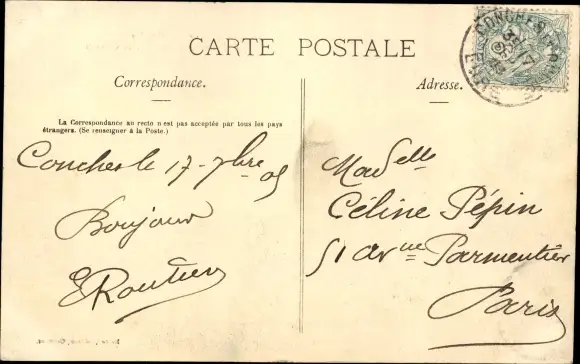 CARTE POSTALE
Correspondance.
Adresse.
La Correspondance au recto n'est pas acceptée par tous les pays
étrangers. (Se renseigner à la Poste.)
Conches le 17-7bre 05
Bonjour
E Routier
Madelle
Céline Pépin
51 avnue Parmentier
Paris
CONCHES
EURE